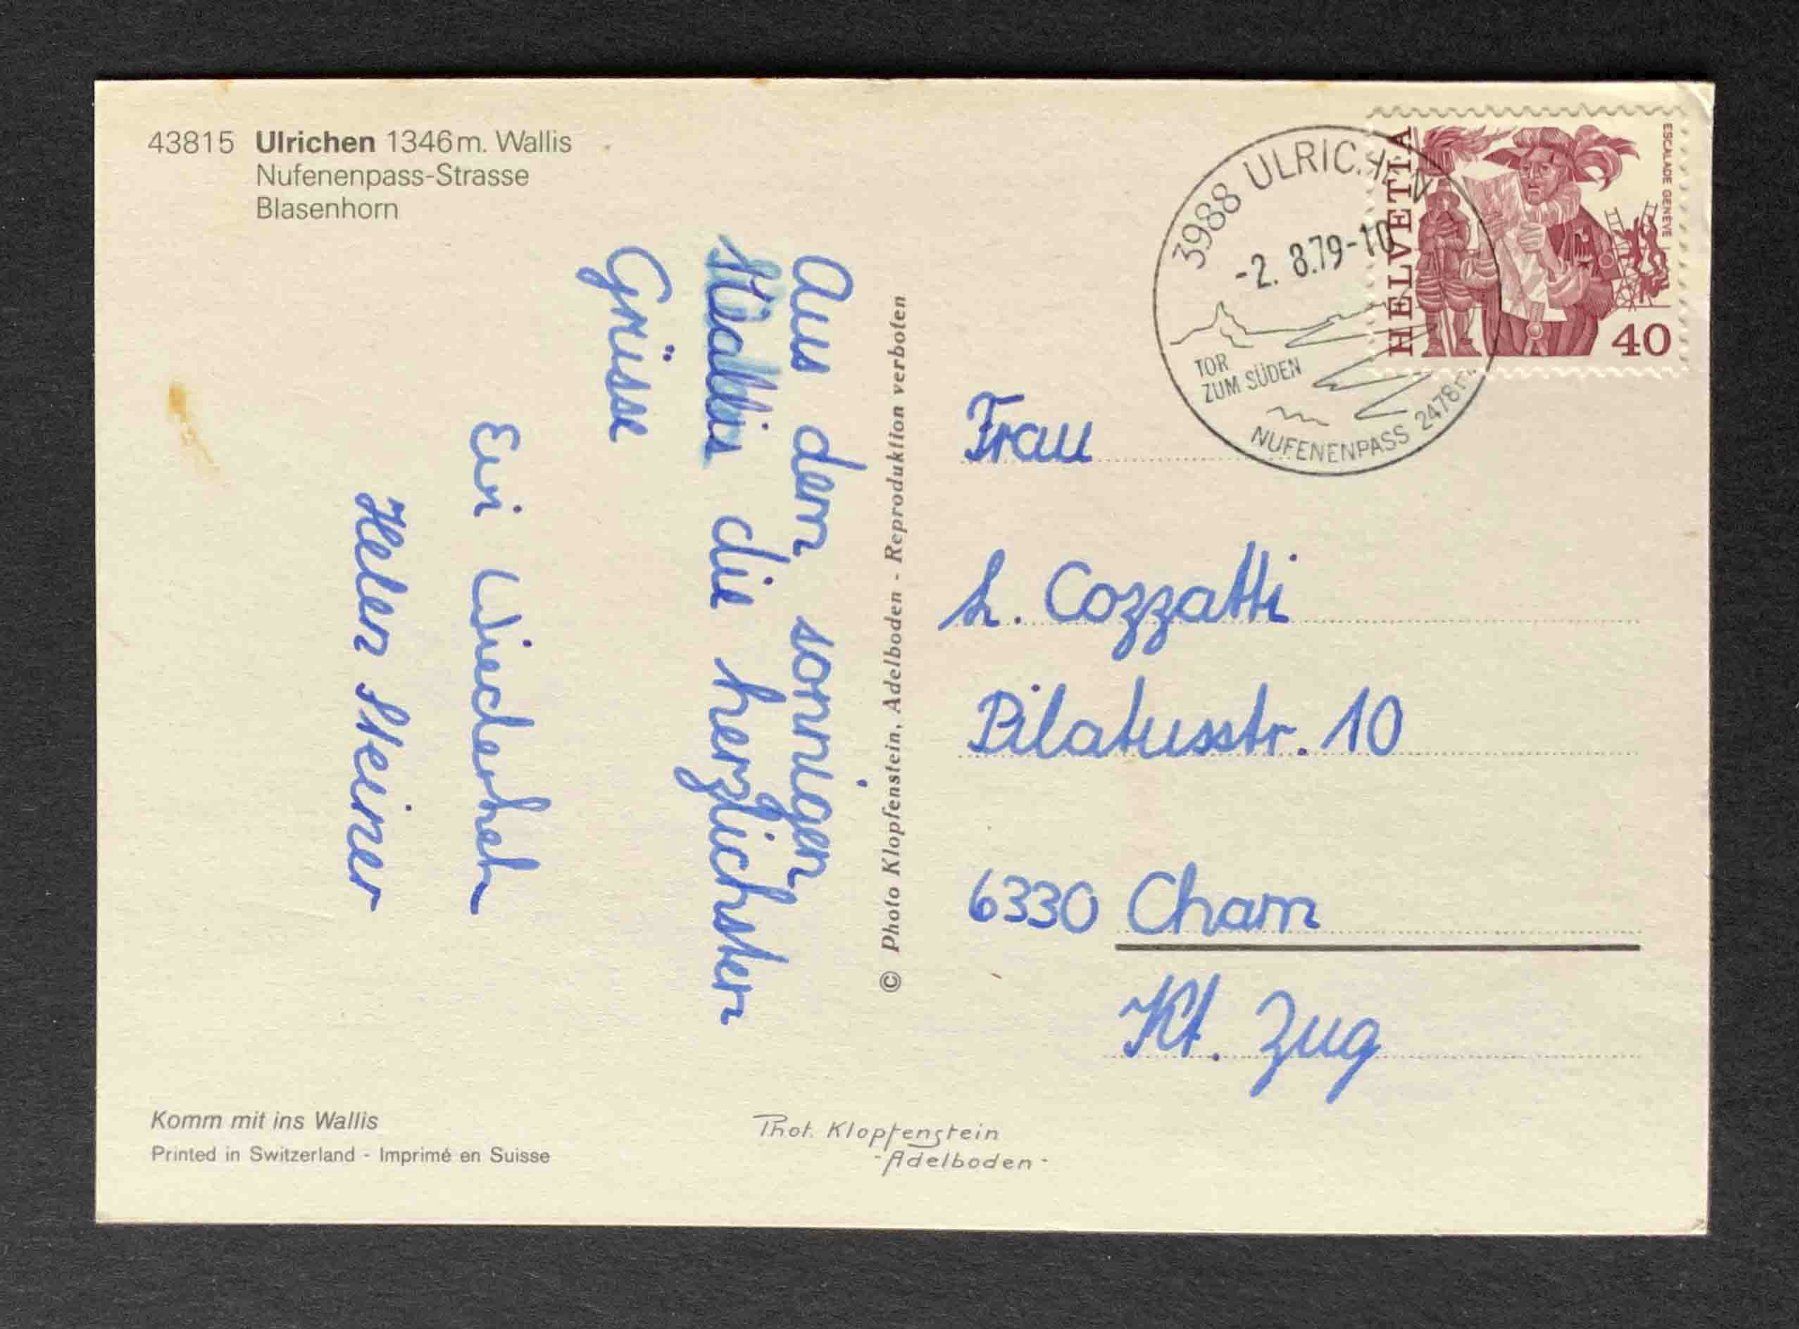 43815 Ulrichen 1346 m. Wallis
Nufenenpass-Strasse
Blasenhorn
Aus dem sonnigen
die herzlichsten
Grüsse
Evi Wiederkeh
Helen Steiner
© Photo Klopfenstein, Adelboden - Reproduktion verboten
3988 ULRICHEN
-2. 8.79-10
TOR
ZUM SÜDEN
NUFENENPASS 2478m
HELVETIA
ESCALADE GENÈVE
40
Frau
L. Cozzatti
Pilatusstr. 10
6330 Cham
Kt. Zug
Komm mit ins Wallis
Printed in Switzerland - Imprimé en Suisse
Phot. Klopfenstein
-Adelboden-